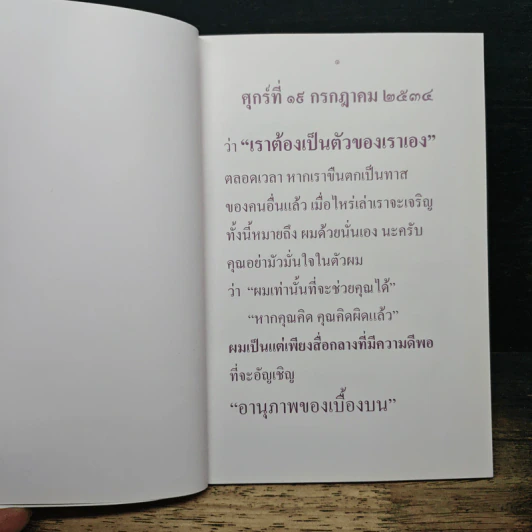 ๑
ศุกร์ที่ ๑๙ กรกฎาคม ๒๕๓๔
ว่า “เราต้องเป็นตัวของเราเอง”
ตลอดเวลา หากเราขืนตกเป็นทาส
ของคนอื่นแล้ว เมื่อไหร่เล่าเราจะเจริญ
ทั้งนี้หมายถึง ผมด้วยนั่นเอง นะครับ
คุณอย่ามัวมั่นใจในตัวผม
ว่า “ผมเท่านั้นที่จะช่วยคุณได้”
“หากคุณคิด คุณคิดผิดแล้ว”
ผมเป็นแต่เพียงสื่อกลางที่มีความดีพอ
ที่จะอัญเชิญ
“อานุภาพของเบื้องบน”